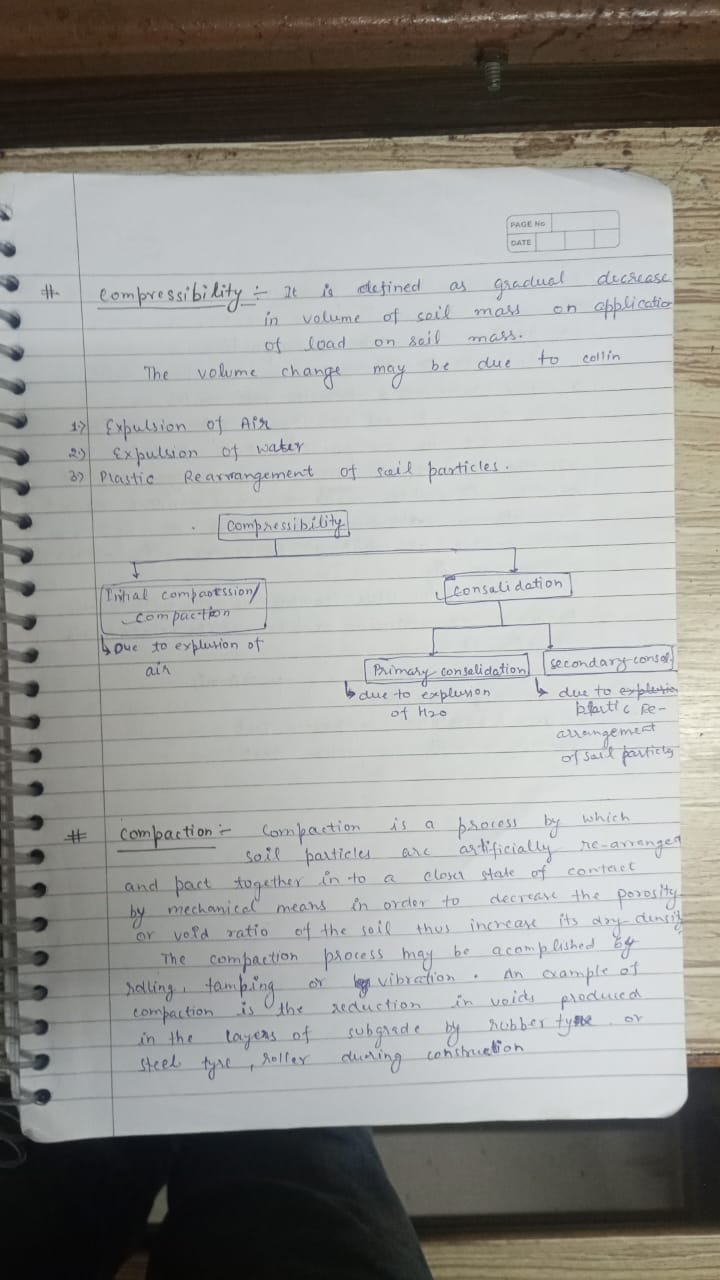 PAGE No
DATE
# Compressibility :- It is defined as gradual decrease
in volume of soil mass on application
of load on soil mass.
The volume change may be due to collin
1) Expulsion of Air
2) Expulsion of water
3) Plastic Rearrangement of soil particles.
Compressibility
Initial compression/
compaction
Consalidation
Due to explusion of
air
Primary consalidation
Secondary consol
due to explusion
of H2O
due to explusion
plastic Re-
arrangement
of soil particles
# Compaction :- Compaction is a process by which
soil particles are artificially re-arranged
and pact together in to a closer state of contact
by mechanical means in order to decrease the porosity
or void ratio of the soil thus increase its dry density
The compaction process may be acomplished by
rolling, tamping or by vibration. An example of
compaction is the reduction in voids produced
in the layers of subgrade by rubber tyre or
steel tyre, roller during construction